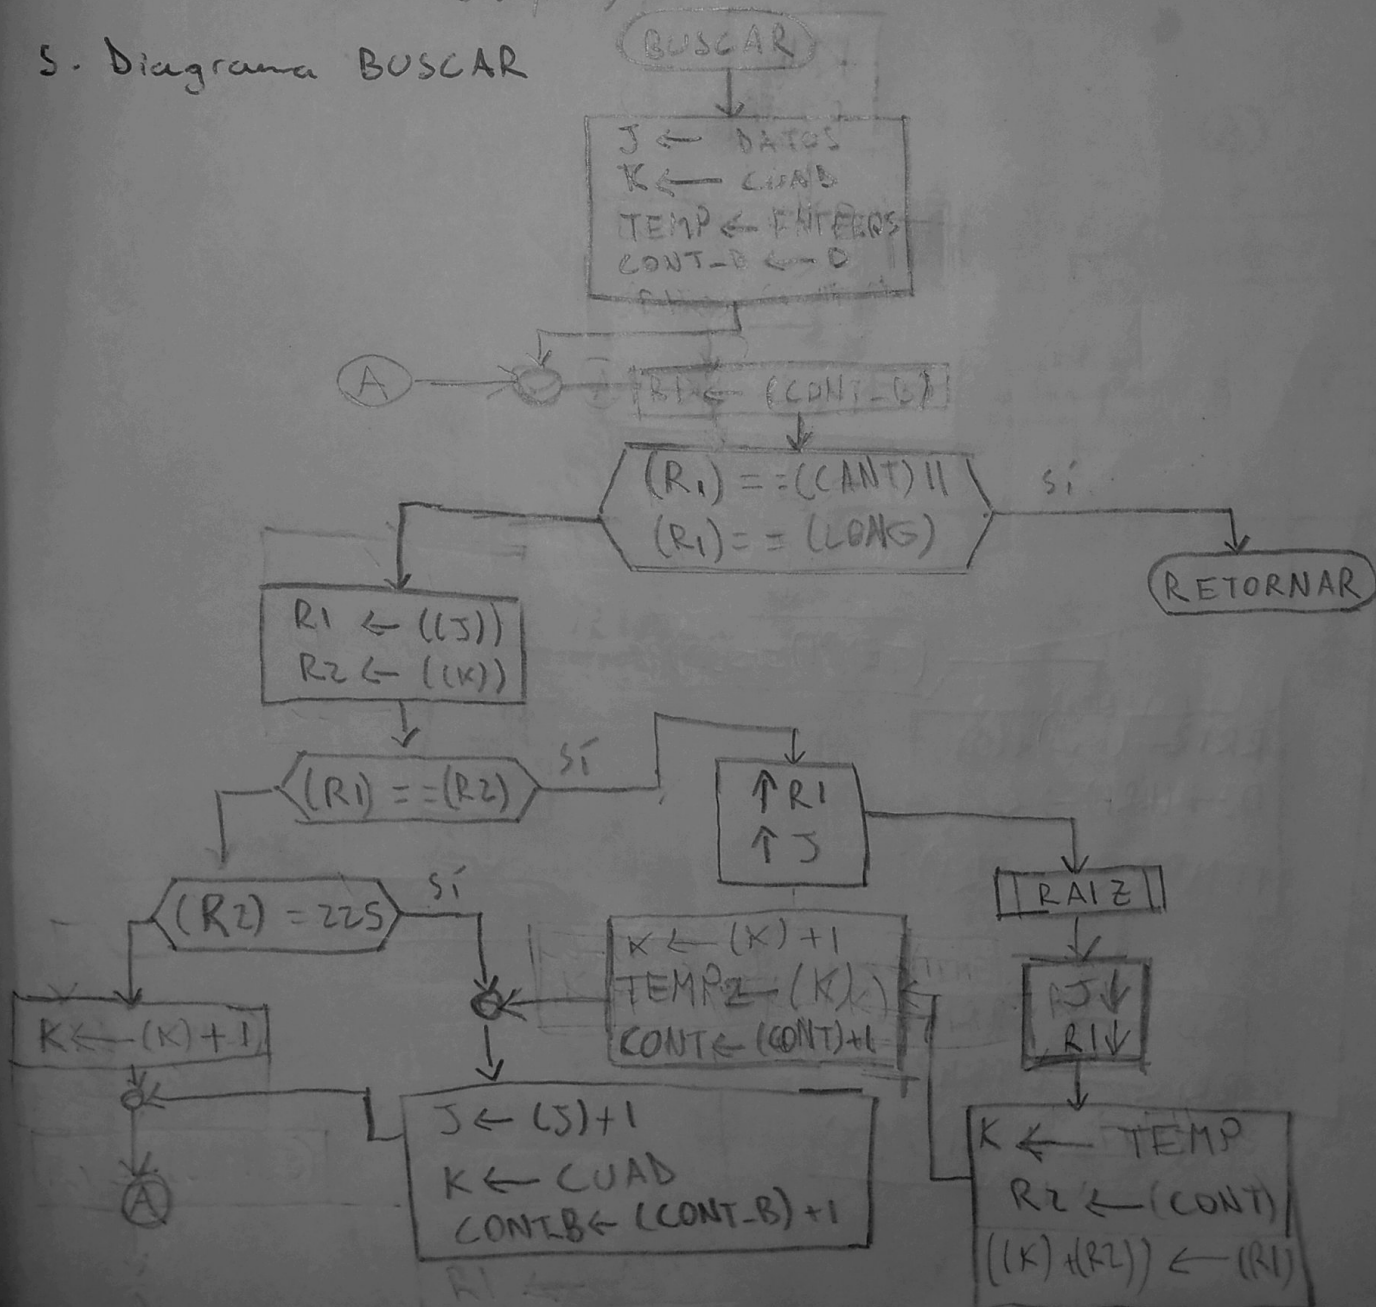 5. Diagrama BUSCAR
BUSCAR
J ← DATOS
K ← CUAD
TEMP ← ENTEROS
CONT_B ← 0
A
R1 ← (CONT_B)
(R1) == (CANT) ||
(R1) == (LONG)
SÍ
RETORNAR
R1 ← ((J))
R2 ← ((K))
(R1) == (R2)
SÍ
↑ R1
↑ J
RAIZ
(R2) = 225
SÍ
K ← (K) + 1
TEMP2 ← (K)
CONT ← (CONT) + 1
J ↓
R1 ↓
K ← (K) + 1
J ← (J) + 1
K ← CUAD
CONT_B ← (CONT_B) + 1
K ← TEMP
R2 ← (CONT)
((K) + (R2)) ← (R1)
A